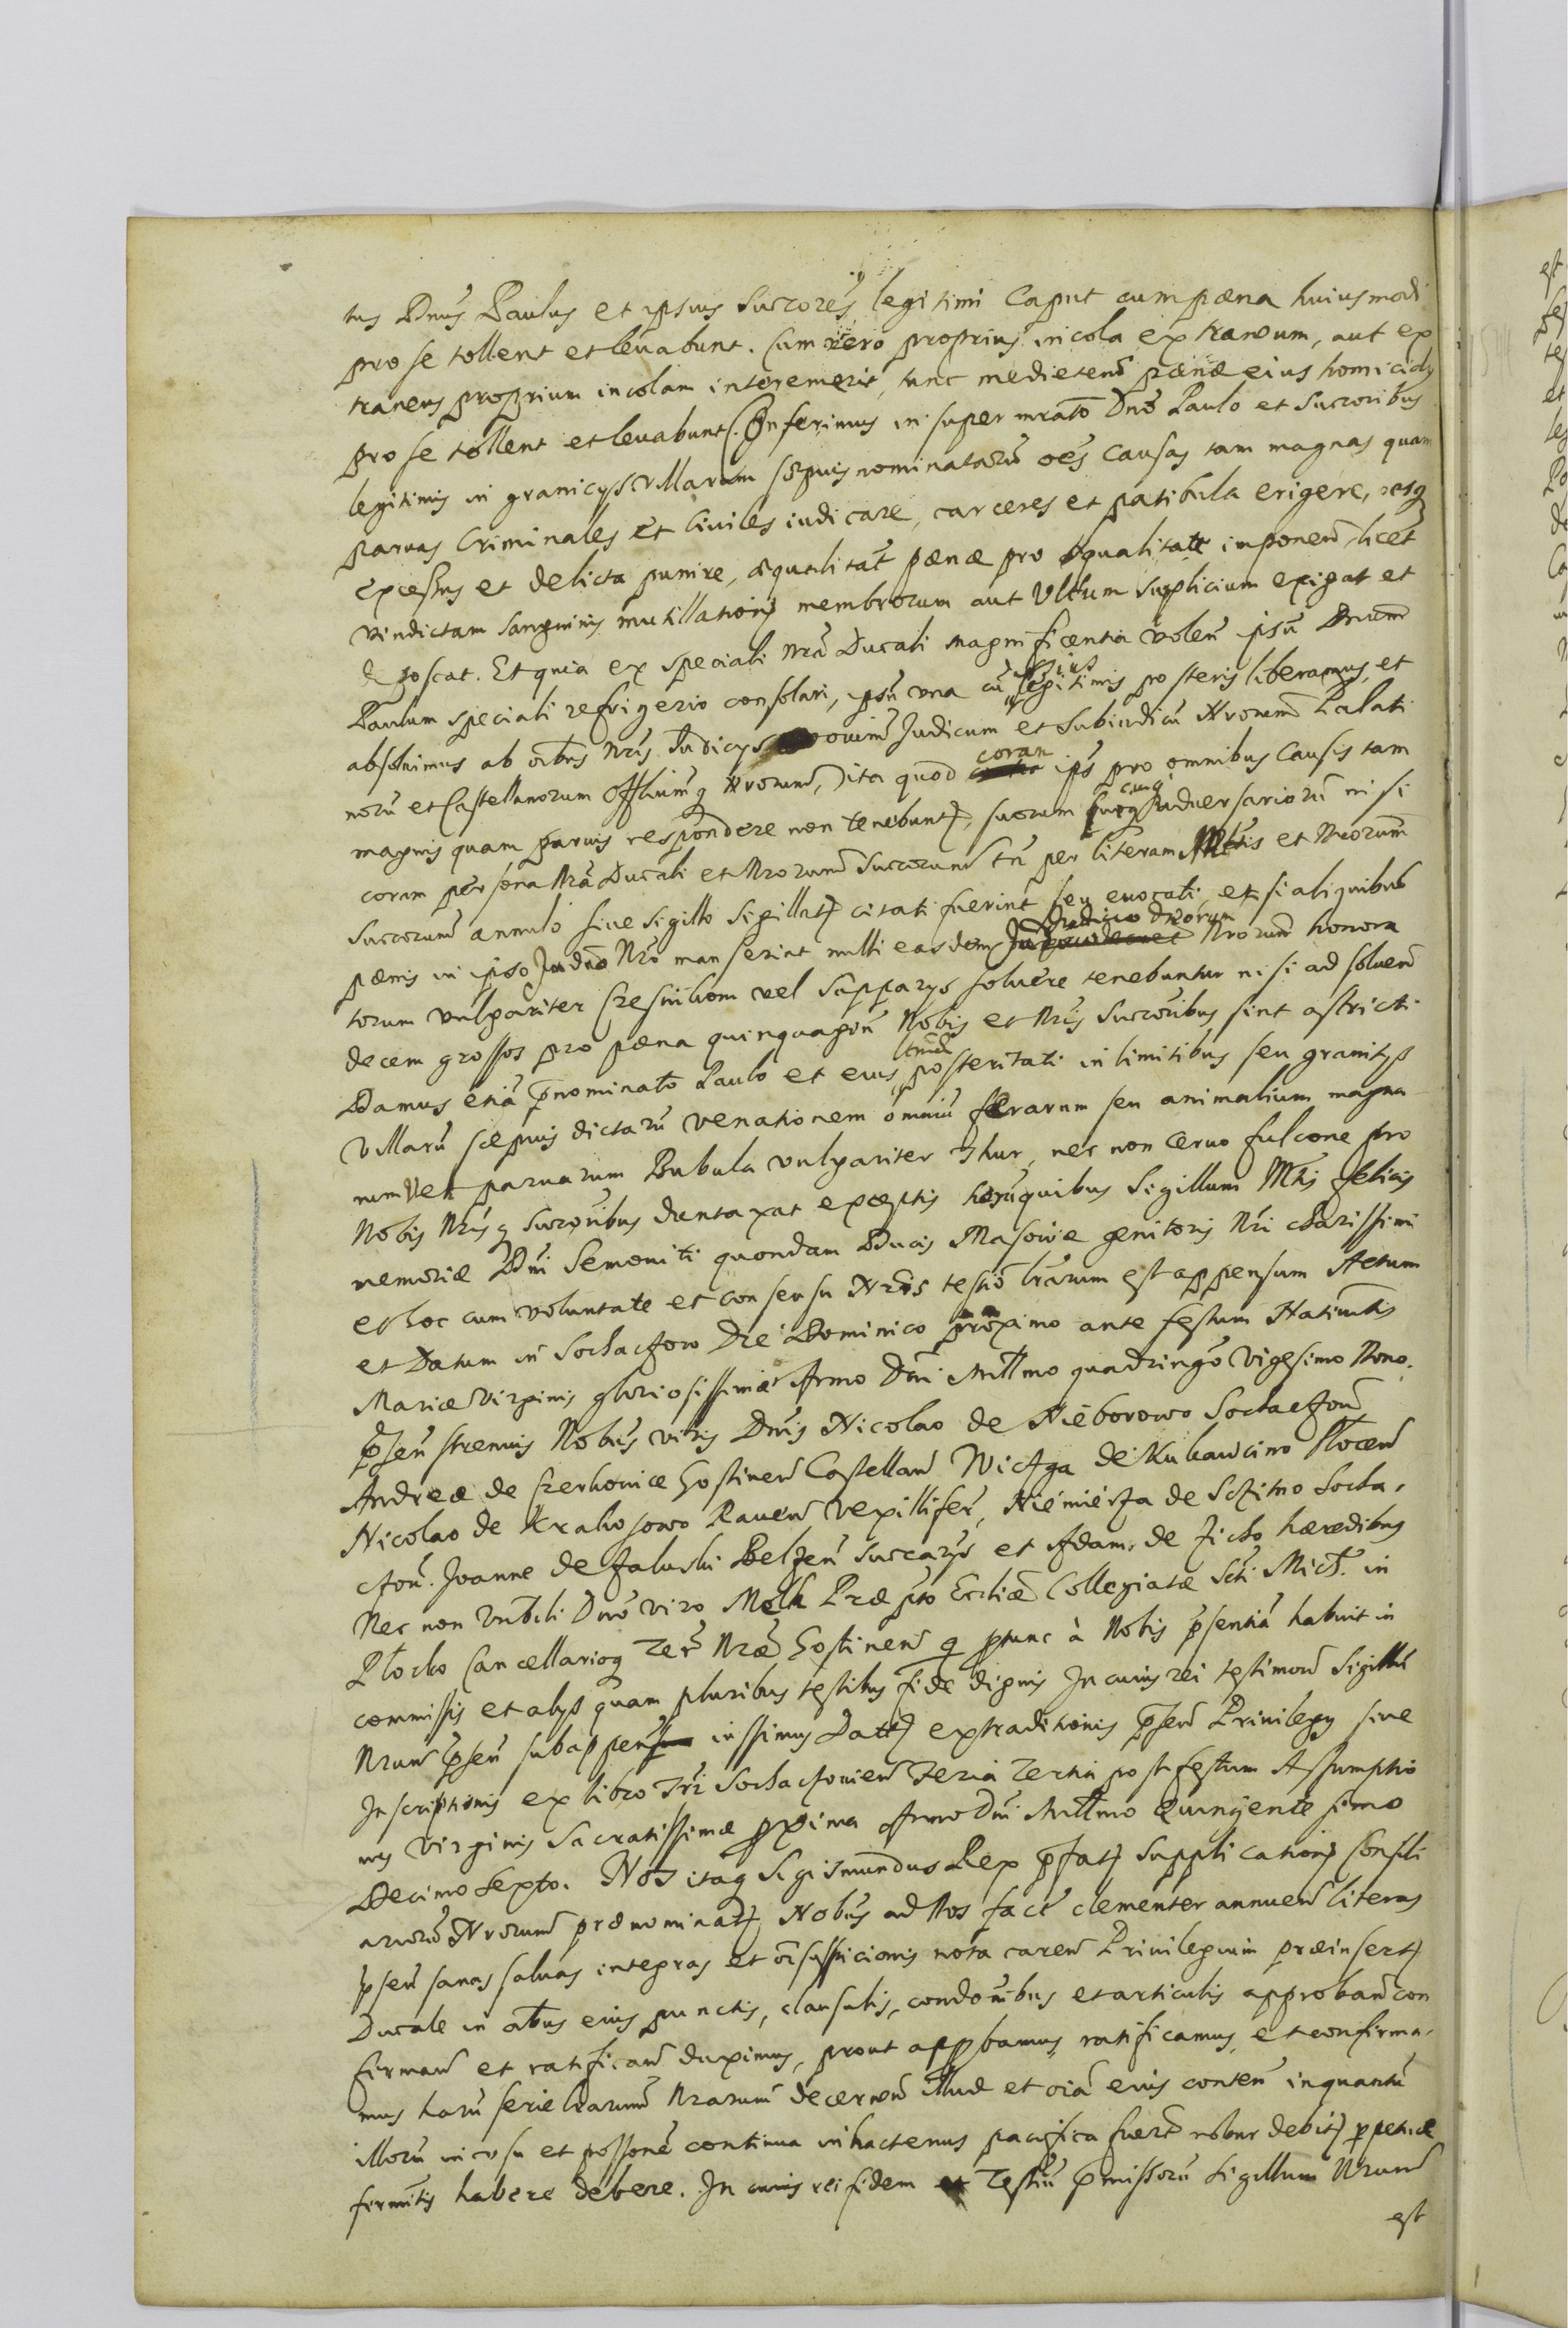 tus Dnus Paulus et ipsius Succores legitimi Caput cum pæna huiusmodi
pro se tollent et levabunt. Cum vero proprius incola extraneum, aut ex
traneus proprium incolam interemerit, tunc medietem pænæ eius homicidy
pro se tollent et levabunt. Conferimus insuper mrato Dno Paulo et Succoribus
legitimis in granicys Villarum sæpius nominatarum oes Causas tam magnas quam
parvas Criminales et Civiles iudicare, carceres et patibula erigere, resq
excessus et delicta punire, æqualitat pænæ pro qualitate imponen, licet
vindictam sanguinis mutillationis membrorum aut Vltum Supplicium exigat et
deposcat. Et quia ex speciali nra Ducali magnificentia volen ipsu Dnum
Paulum speciali refrigerio consolari, ipsu una cu ipsius legitimis posteris liberamus, et
absolvimus ab oibus Nris Iudicys ovium Judicum et Subiudicu Nrorum Palati
noru et Castellanorum Offlium q Nrorum, ita quod coran ips pro omnibus Causis tam
magnis quam parvis respondere non tenebunt, suorum cuiusq Adversarioru ni si
coram persona Nra Ducali et Nrorum Succorum tn per literam Nris et Nrorum
Succorum annulo sive Sigillo Sigillat citati fuerint seu evocati, et si aliquibus
pænis in ipso Judico Nro manserint nulli easdem Judico Dnorum Nrorum honora
torum vulgariter Czesnikom vel Sapparys solvere tenebuntur ni si ad solven
decem grossos pro pæna quinquagen Nobis et Nris Succoribus sint astricti
Damus etia pnominato Paulo et eius ltmæ posteritati in limitibus seu granitys
Villaru sæpius dictaru venationem omniu ferarum seu animalium magna
rum vel parvarum Bubula vulgariter Thur, nec non cervo fulcone pro
Nobis Nris q Succoribus duntaxat exceptis haru quibus Sigillum Mtis felicis
memoriæ Dni Semoviti quondam Ducis Masoviæ genitoris Nri charissimi
et hoc cum voluntate et consensu Nris testio lrarum est appensum Actum
et Datum in Sochaczow Die Dominico proximo ante festum Nativitatis
Mariæ virginis gloriosissimæ Anno Dni Millmo quadringeo vigesimo Nono.
psen strenuis Nobus viris Dnis Nicolao de Nieborowo Sochaczon
Andreæ de Szerkowice Gostinen Castellan Wiczga de Kuhawcino Plocen
Nicolao de Krakosowo Raven Vexillifer, Niemierza de Scitno Socha.
czon. Joanne de Zaluski Belzen Succarys et Adam. de Zicko hæredibus
Nec non Vnbili Dno viro Molk Præpto Ecclia Collegiatæ Scti Mich. in
Plocko Cancellarioq Ter Nræ Gostinen q ptunc à Nobis psentia habuit in
commissis et alys quam pluribus testibus fide dignis In cuius rei testimon Sigillu
Nrum psen subappen iussimus Datt extraditionis psen Privilegy sive
Inscriptionis ex libro Tri Sochaczovien Feria Tertia post festum Assumptio
nis Virginis Sacratissimæ pxima Anno Dni Millmo Quingentesimo
Decimo Sexto. Nos itaq Sigismundus Rex pfat Supplication Consili
arioru Nrorum prænominat Nobus ad Nos fact clementer annuen literas
psen sanas salvas integras et oi suspicionis nota caren Privilegium præinsert
Ducale in oibus eius punctis, clausulis, condonibus et articulis approban con
firman et ratifican duximus, prout appbamus ratificamus et confirma.
mus haru serie lrarum Nrarum decernen illud et oia eius conten inquantu
illoru in usu et possone continua in hactenus pacifica fuert robur debit ppetuæ
firmitis habere debere. In cuius rei fidem et Testiu pmissoru Sigillum Nrum
est